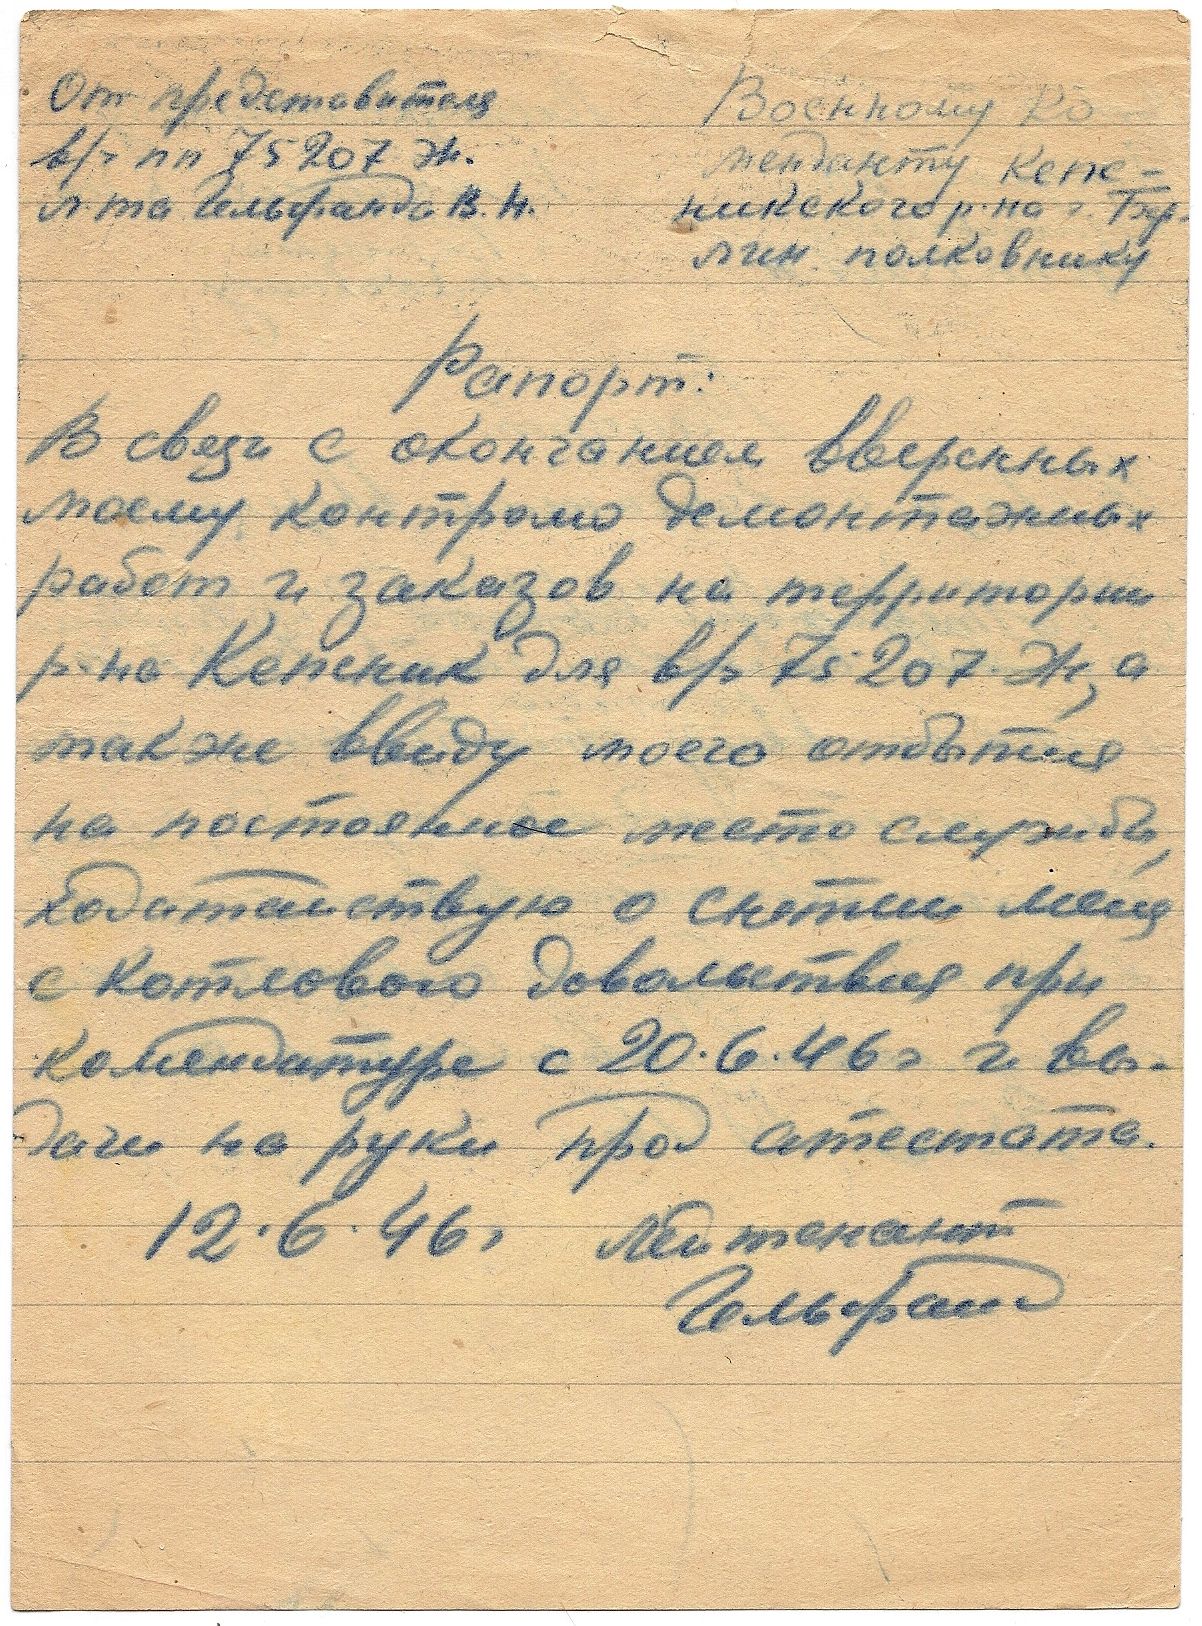 От представителя
в/ч пп 75207 Ж.
л-та Гельфанда В. Н.
Военному Ко
менданту Кепе-
никского р-на г. Бер-
лин полковнику
Рапорт:
В связи с окончанием вверенных
моему контролю демонтажных
работ и заказов на территории
р-на Кепеник для в/ч 75207-Ж, а
также ввиду моего отбытия
на постоянное место службы,
ходатайствую о снятии меня
с котлового довольствия при
комендатуре с 20.6.46 г и вы-
дачи на руки прод атестата.
12.6.46 г Лейтенант
Гельфанд